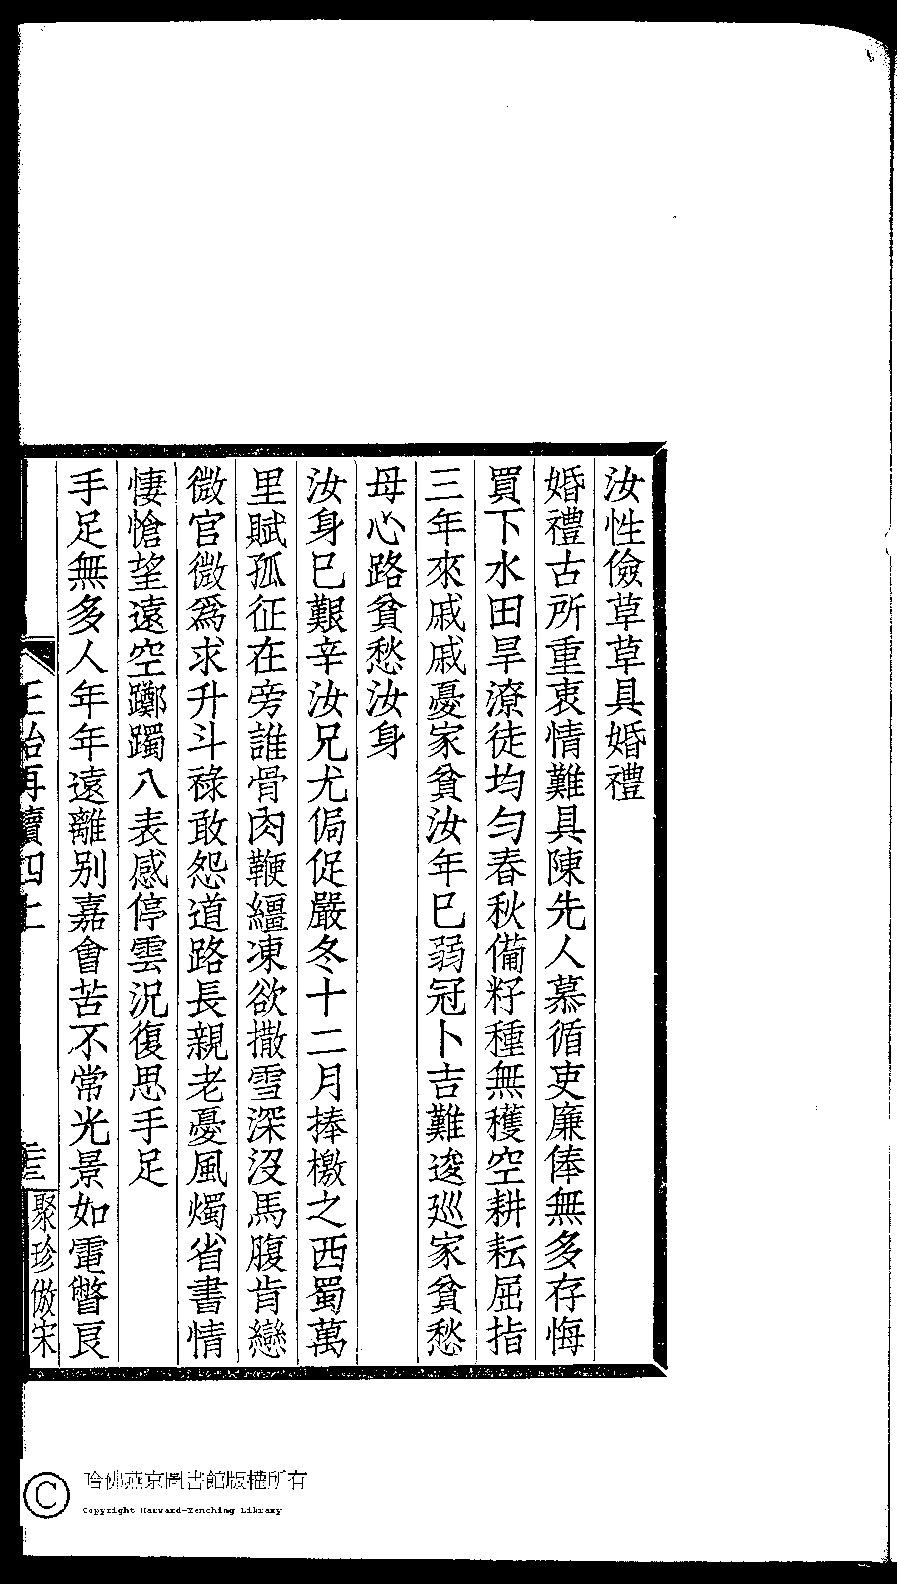 汝性儉草草具婚禮
婚禮古所重衷情難具陳先人慕循吏廉俸無多存悔
買下水田旱潦徒均勻春秋備籽種無穫空耕耘屈指
三年來戚戚憂家貧汝年巳弱冠卜吉難逡巡家貧愁
母心路貧愁汝身
汝身巳艱辛汝兄尤侷促嚴冬十二月捧檄之西蜀萬
里賦孤征在旁誰骨肉鞭繮凍欲撒雪深沒馬腹肯戀
微官微爲求升斗祿敢怨道路長親老憂風燭省書情
悽愴望遠空躑躅八表感停雲況復思手足
手足無多人年年遠離别嘉會苦不常光景如電瞥良
正始再續四上
聚珍倣宋
哈佛燕京圖書館版權所有
Copyright Harvard-Yenching Library